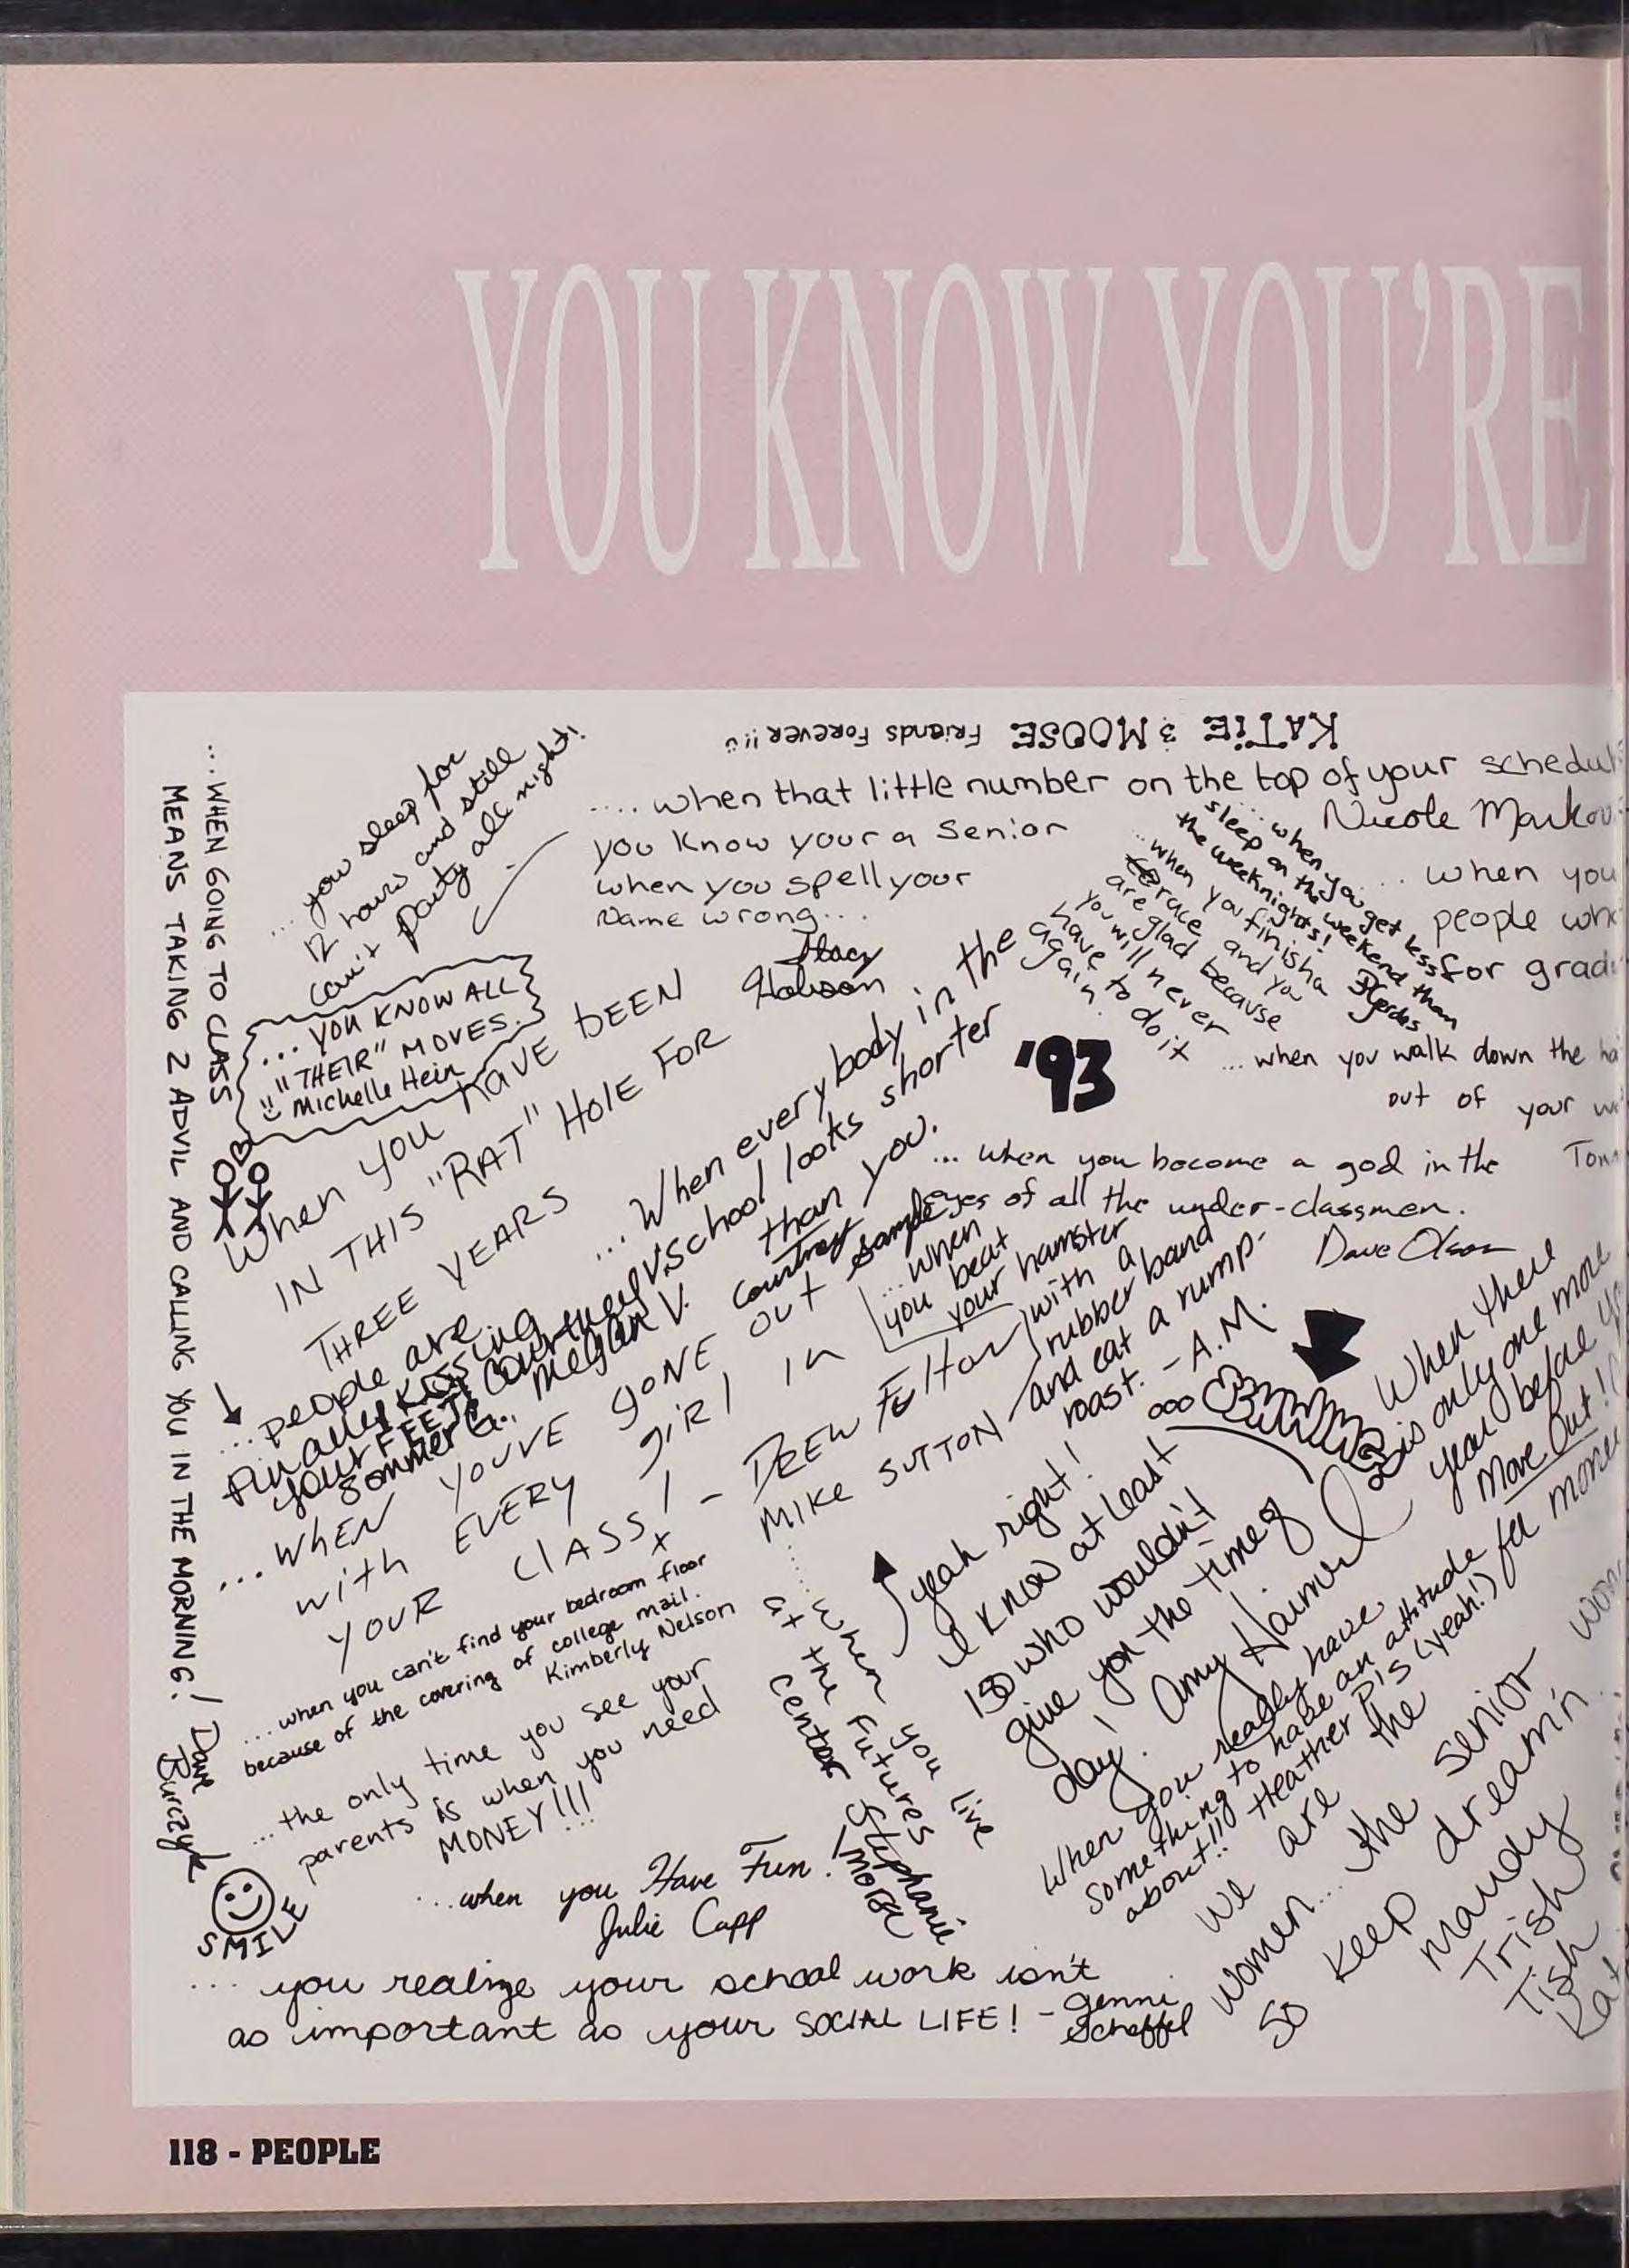 YOU KNOW YOU'RE
KATIE & MOOSE Friends Forever!!
.... when that little number on the top of your schedul
Nicole Markov
you know your a senior
when you spell your
Name wrong...
Stacy
Hobson
... you sleep for
12 hours and still
can't party all night!
... YOU KNOW ALL
"THEIR" MOVES.
Michelle Hein
... WHEN GOING TO CLASS
MEANS TAKING 2 ADVIL AND CALLING YOU IN THE MORNING! Dave
Burczyk
... when you get less
sleep on the weekend than
the weeknights!
... when you finish a
race and you
are glad because
you will never
have to do it
again.
... when you
people who
for grad
'93
... when you walk down the ha
out of your w
Tom
When you have been
IN THIS "RAT" HOLE FOR
THREE YEARS
... When everybody in the
school looks shorter
than you.
Courtney Sample
... when you become a god in the
eyes of all the under-classmen.
Dave Olson
... people are
finally kissing
your FEET! Courtney V.
Sommer G., Megan V.
... when
you beat
your hamster
with a
rubber band
and eat a rump-
roast. - A.M.
... WHEN YOU'VE GONE OUT
with EVERY GIRL IN
YOUR CLASS! - DREW Felton
MIKE SUTTON
When there
is only one more
year before yo
Move Out!!
yeah right!
I know at least
150 who wouldn't
give you the time of
day! Amy Haimerl
... when you can't find your bedroom floor
because of the covering of college mail.
Kimberly Nelson
... the only time you see your
parents is when you need
MONEY!!!
...... when you live
at the Futures
Center Stephanie
Morse
When you really have
something to have an attitude
about!! Heather P.
... when you Have Fun!
Julie Capp
SMILE
We are the
women... the senior
So keep dreamin
Mandy
Trish
Tish
Kat
... you realize your school work isn't
as important as your SOCIAL LIFE! - Jenni
Scheffel
118 - PEOPLE